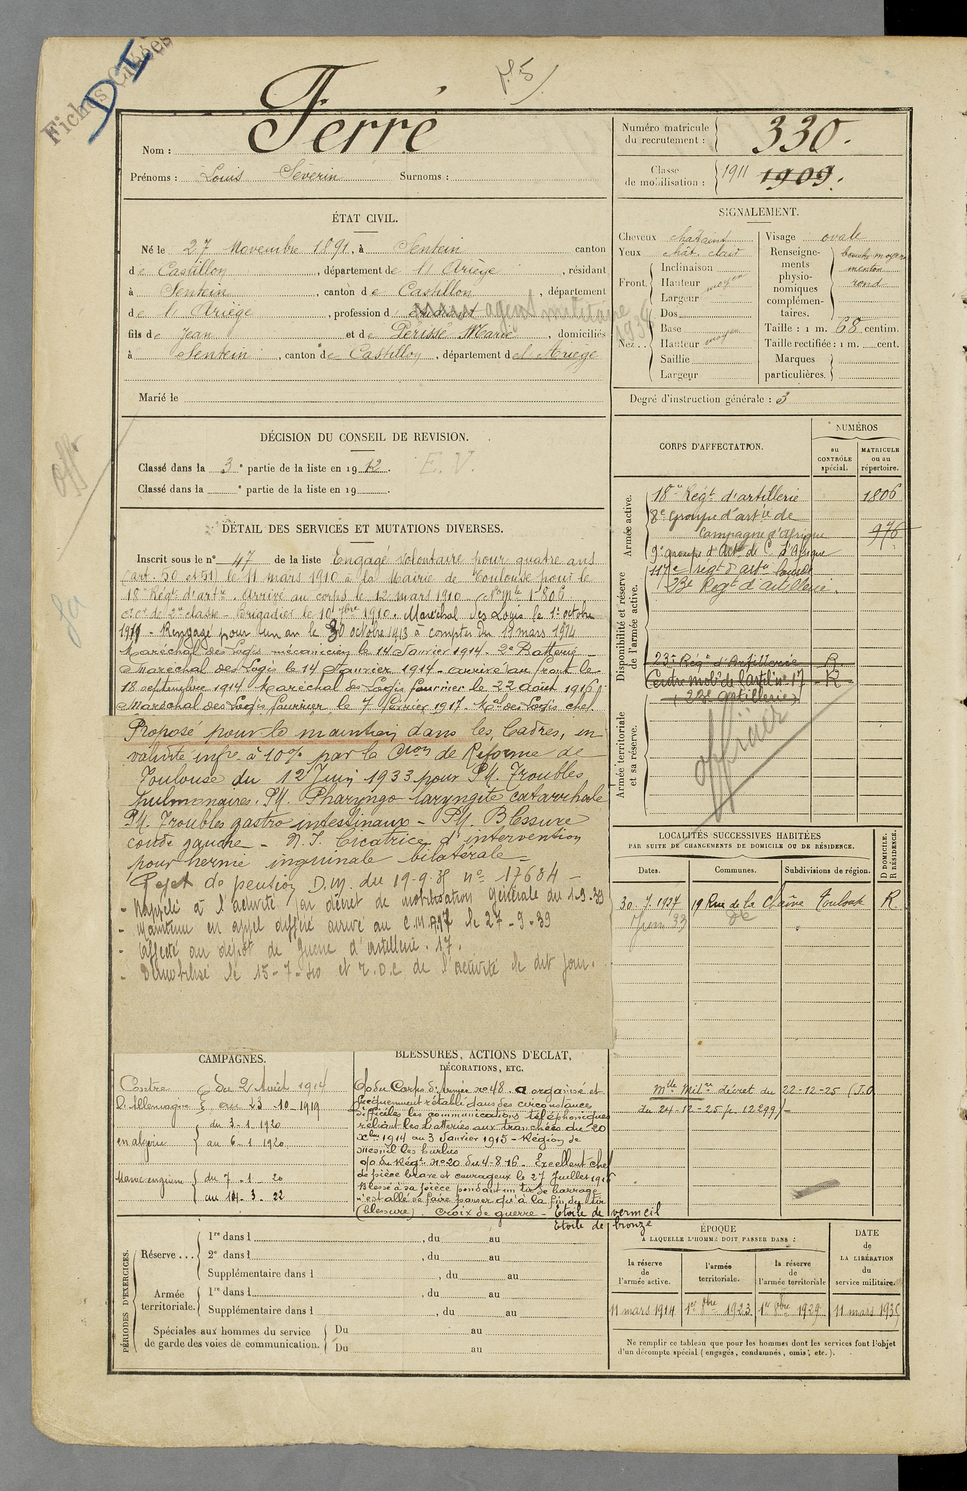 Fiches Créées
D I
Nom : Ferré
Prénoms : Louis Séverin Surnoms :
Numéro matricule
du recrutement : 330.
Classe
de mobilisation : 1911 1909.
ÉTAT CIVIL.
Né le 27 Novembre 1891, à Sentein canton
de Castillon, département de l'Ariège, résidant
à Sentein, canton de Castillon, département
de l'Ariège, profession d agent militaire
fils de Jean et de Périssé Marie, domiciliés
à Sentein, canton de Castillon, département de l'Ariège
Marié le
SIGNALEMENT.
Cheveux châtains
Yeux chât. clair
Front. Inclinaison
Hauteur moyen
Largeur
Nez.. Dos
Base
Hauteur moyen
Saillie
Largeur
Visage ovale
Renseignements physionomiques complémentaires. bouche moyenne
menton
rond
Taille : 1 m. 68 centim.
Taille rectifiée : 1 m. cent.
Marques
particulières.
Degré d'instruction générale : 3
DÉCISION DU CONSEIL DE REVISION.
Classé dans la 3e partie de la liste en 1912. E. V.
Classé dans la e partie de la liste en 19 .
CORPS D'AFFECTATION.
NUMÉROS
au
CONTRÔLE
spécial.
MATRICULE
ou au
répertoire.
Armée active.
18e Régt d'artillerie 1806
8e Groupe d'artie de
Campagne d'Afrique 976
9e groupe d'Art. de C. d'Afrique
117e régt d'artie lourde
23e Régt d'artillerie.
Disponibilité et réserve
de l'armée active.
23e Régt d'Artillerie R.
Centre mob. de l'artil. n° 17 R
(23e artillerie)
Armée territoriale
et sa réserve.
officier
DÉTAIL DES SERVICES ET MUTATIONS DIVERSES.
Inscrit sous le n° 47 de la liste Engagé volontaire pour quatre ans
(art. 50 et 51) le 11 mars 1910 à la Mairie de Toulouse pour le
18e Régt d'artie. Arrivé au corps le 12 mars 1910 n° mle 1806
de 2me classe. Brigadier le 10 1910. Maréchal des Logis le 1er octobre
Rengagé pour un an le 30 octobre 1913 à compter du 19 mars 1914
Maréchal des Logis mécanicien le 14 Janvier 1914. 2e Batterie
Maréchal des Logis le 14 Janvier 1914 - arrivé au front le
18 septembre 1914 Maréchal des Logis fourrier le 22 Août 1916
Maréchal des Logis fourrier le 7 février 1917. Mal des Logis chef.
Proposé pour le maintien dans les Cadres, in-
validité infre à 10% par la Con de Réforme de
Toulouse du 12 Juin 1933 pour P.M. Troubles
pulmonaires. P.M. Pharyngo-laryngite catarrhale
P.M. Troubles gastro intestinaux - P.M. Blessure
coude gauche - N.I. Cicatrice d'intervention
pour hernie inguinale bilatérale -
Rejet de pension D.M. du 19-9-35 n° 17684 -
- Rappelé à l'activité par décret de mobilisation générale du 1-9-39
- Maintenu en appel différé arrivé au C.M.A. 17 le 27-9-39
- affecté au dépôt de guerre d'artillerie. 17.
- Démobilisé le 15-7-40 et R.D.C de l'activité le dit jour.
LOCALITÉS SUCCESSIVES HABITÉES
PAR SUITE DE CHANGEMENTS DE DOMICILE OU DE RÉSIDENCE.
Dates.
Communes.
Subdivisions de région.
D DOMICILE.
R RÉSIDENCE.
30-7-1927 19 Rue de la Chaîne Toulouse R.
Juin 33 de
Mlle Milre décret du 22-12-25 (J.O
du 24-12-25 p. 12299)
CAMPAGNES.
Contre du 2 Août 1914
l'Allemagne au 23-10-1919
en algérie du 3-1-1920
au 6-1-1920
Maroc en guerre du 7-1-20
au 14-3-22
BLESSURES, ACTIONS D'ÉCLAT,
DÉCORATIONS, ETC.
O/o du Corps d'Armée n° 48. a organisé et
fréquemment rétabli dans des circonstances
difficiles les communications téléphoniques
reliant les batteries aux tranchées du 20
Xbre 1914 au 3 Janvier 1915 - Région de
Mesnil les Hurlus
O/o du Régt n° 20 du 4-8-16. Excellent chef
de pièce brave et courageux le 27 Juillet 1916
Blessé à sa pièce pendant un tir de barrage
n'est allé se faire panser qu'à la fin du tir
(blessure). Croix de guerre - Etoile de vermeil
Etoile de bronze
PÉRIODES D'EXERCICES.
Réserve... 1re dans l , du au
2e dans l , du au
Supplémentaire dans l , du au
Armée
territoriale. 1re dans l , du au
Supplémentaire dans l , du au
Spéciales aux hommes du service
de garde des voies de communication. Du au
Du au
ÉPOQUE
A LAQUELLE L'HOMME DOIT PASSER DANS :
la réserve
de
l'armée active.
l'armée
territoriale.
la réserve
de
l'armée territoriale
DATE
de
LA LIBÉRATION
du
service militaire.
11 mars 1914 1er 8bre 1923 1er 8bre 1929 11 mars 1935
Ne remplir ce tableau que pour les hommes dont les services font l'objet
d'un décompte spécial (engagés, condamnés, omis, etc.).